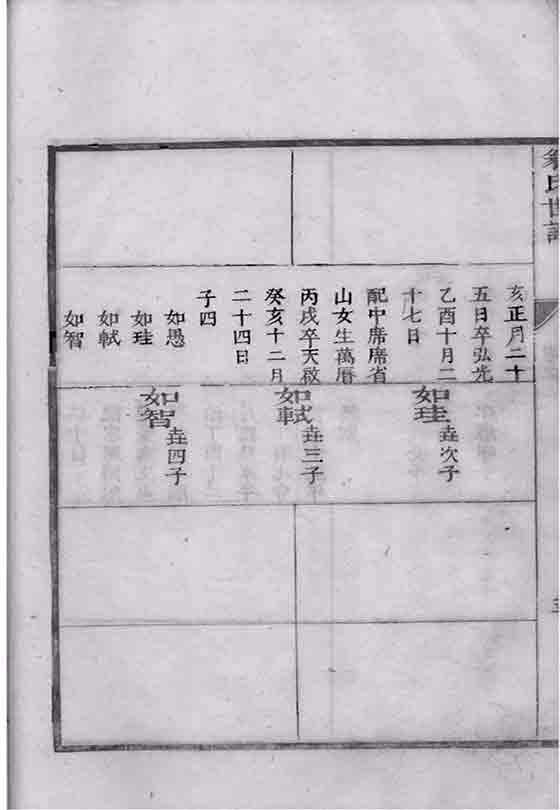 氏世譜
亥正月二十
五日卒弘光
乙酉十月二
十七日
配中席席省
山女生萬曆
丙戌卒天啟
癸亥十二月
二十四日
子四
如愚
如珪
如軾
如智
如珪 垚次子
如軾 垚三子
如智 垚四子